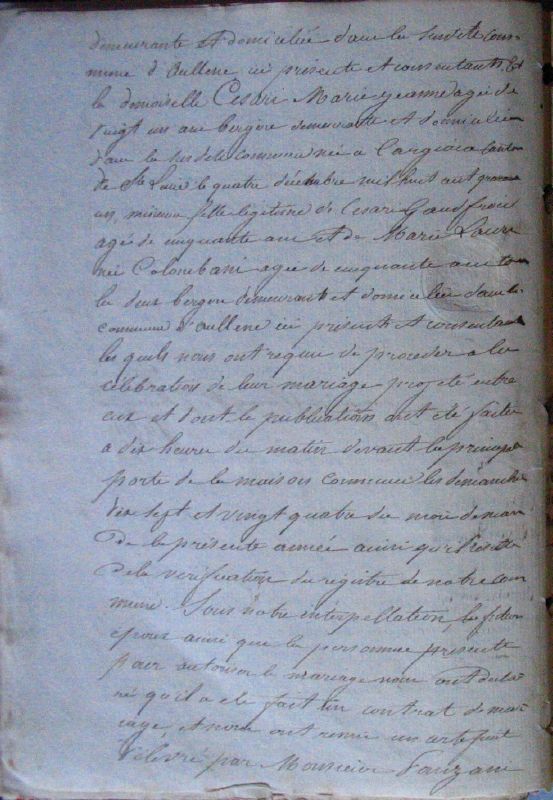 demeurante et domiciliée dans la susdite com-
mune d'aullene ici présente et consentants, Et
la demoiselle Cesari Marie jeanne agée de
vingt un ans bergere demeurante et domiciliée
dans la susdite commune née a Cargiaca canton
de Ste Lucie le quatre décembre mil huit cent quarante
un, mineure fille legitime de Cesari Gaudfroid
agé de cinquante ans et de Marie Laure
née Colombani agée de cinquante ans tous
les deux bergers demeurants et domiciliés dans la
commune d'aullene ici présents et consentants
les quels nous ont requis de proceder a la
célébration de leur mariage projeté entre
eux et dont les publications ont été faites
a dix heures du matin devant la principale
porte de la maison commune les dimanches
dix sept et vingt quatre du mois de
De la présente année ainsi qu'il résulte
De la vérification du registre de notre com-
mune. Sous notre interpellation, les futurs
époux ainsi que les personnes présentes
pour autoriser le mariage nous ont décla-
ré qu'il a été fait un contrat de mar-
iage, et nous ont remis un
délivré par Monsieur